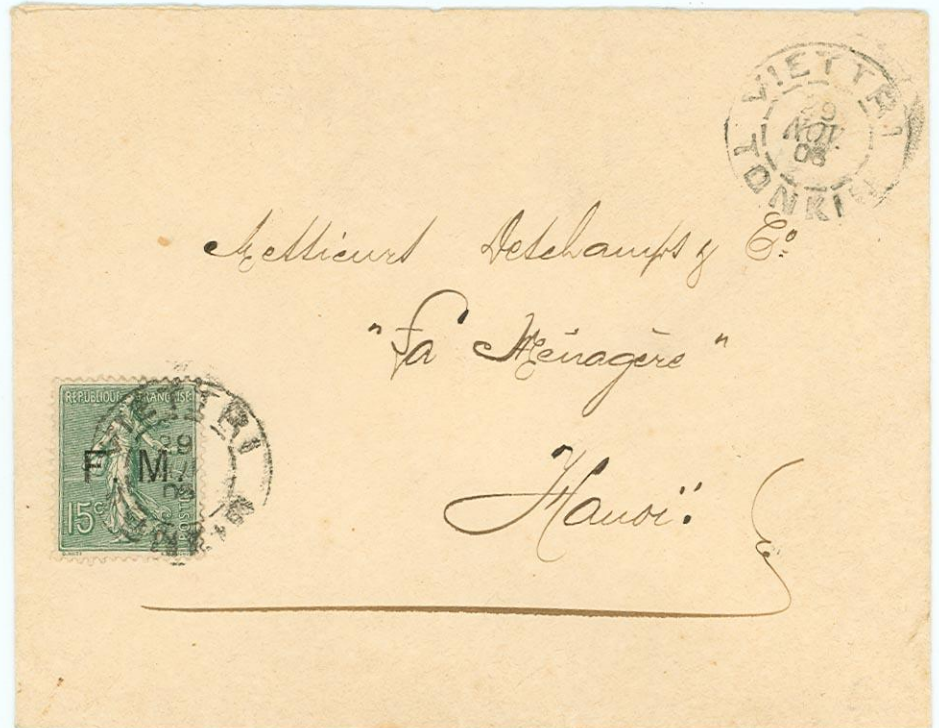 VIETTRI
29
NOV.
08
TONKIN
Messieurs Deschamps & Cº
"La Ménagère"
Hanoï.
REPUBLIQUE FRANÇAISE
F M
15c
VIETTRI
29
08